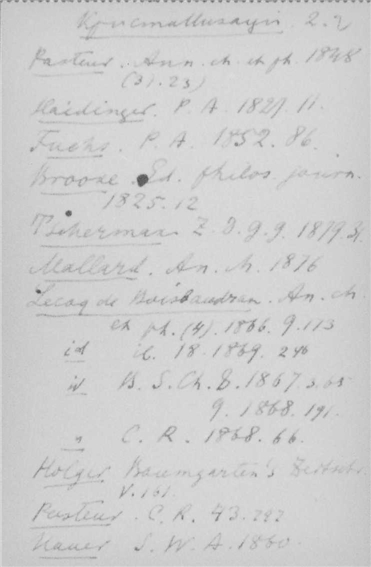 Кристаллизація. 2.2
Pasteur. Ann. ch. et ph. 1848
(31.23)
Haidinger. P. A. 1827. 11.
Fuchs. P. A. 1852. 86.
Brooke. Ed. philos. journ.
1825. 12
Tschermak Z. D. g. g. 1879. 31.
Mallard. An. M. 1876
Lecoq de Boisbaudran. An. ch.
et ph. (4). 1866. 9. 113
id ib. 18. 1869. 246
id B. S. Ch. 1867. 3.
9. 1868. 191.
" C. R. 1868. 66.
Holger Baumgarten's Zeitschr.
V. 161.
Pasteur. C. R. 43. 292
Hauer S. W. A. 1860.